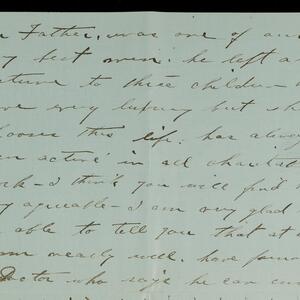 Father, was one of our
best men: he left a
to three children—
every luxury but she
this life. has always
active in all charitable
I think you will find
agreeable—I am very glad
able to tell you that at
nearly well. have found
Doctor who says he can